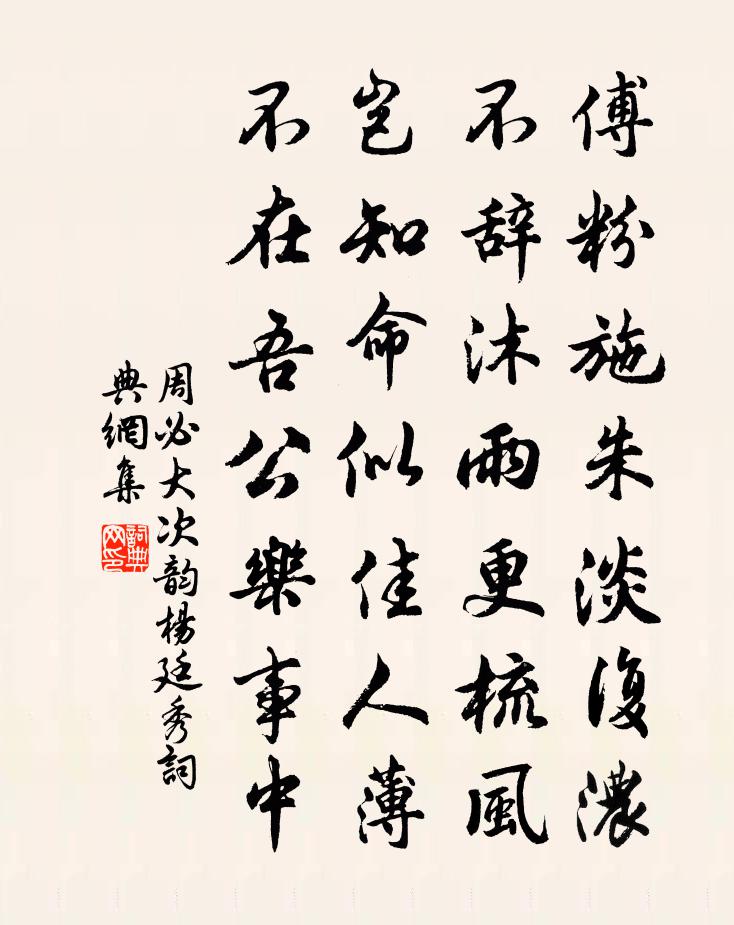 傅粉施朱淡復濃
不辞沐雨更梳風
豈知命似佳人薄
不在吾公樂事中
周必大次韵楊廷秀詞
典網集
詞典
网印